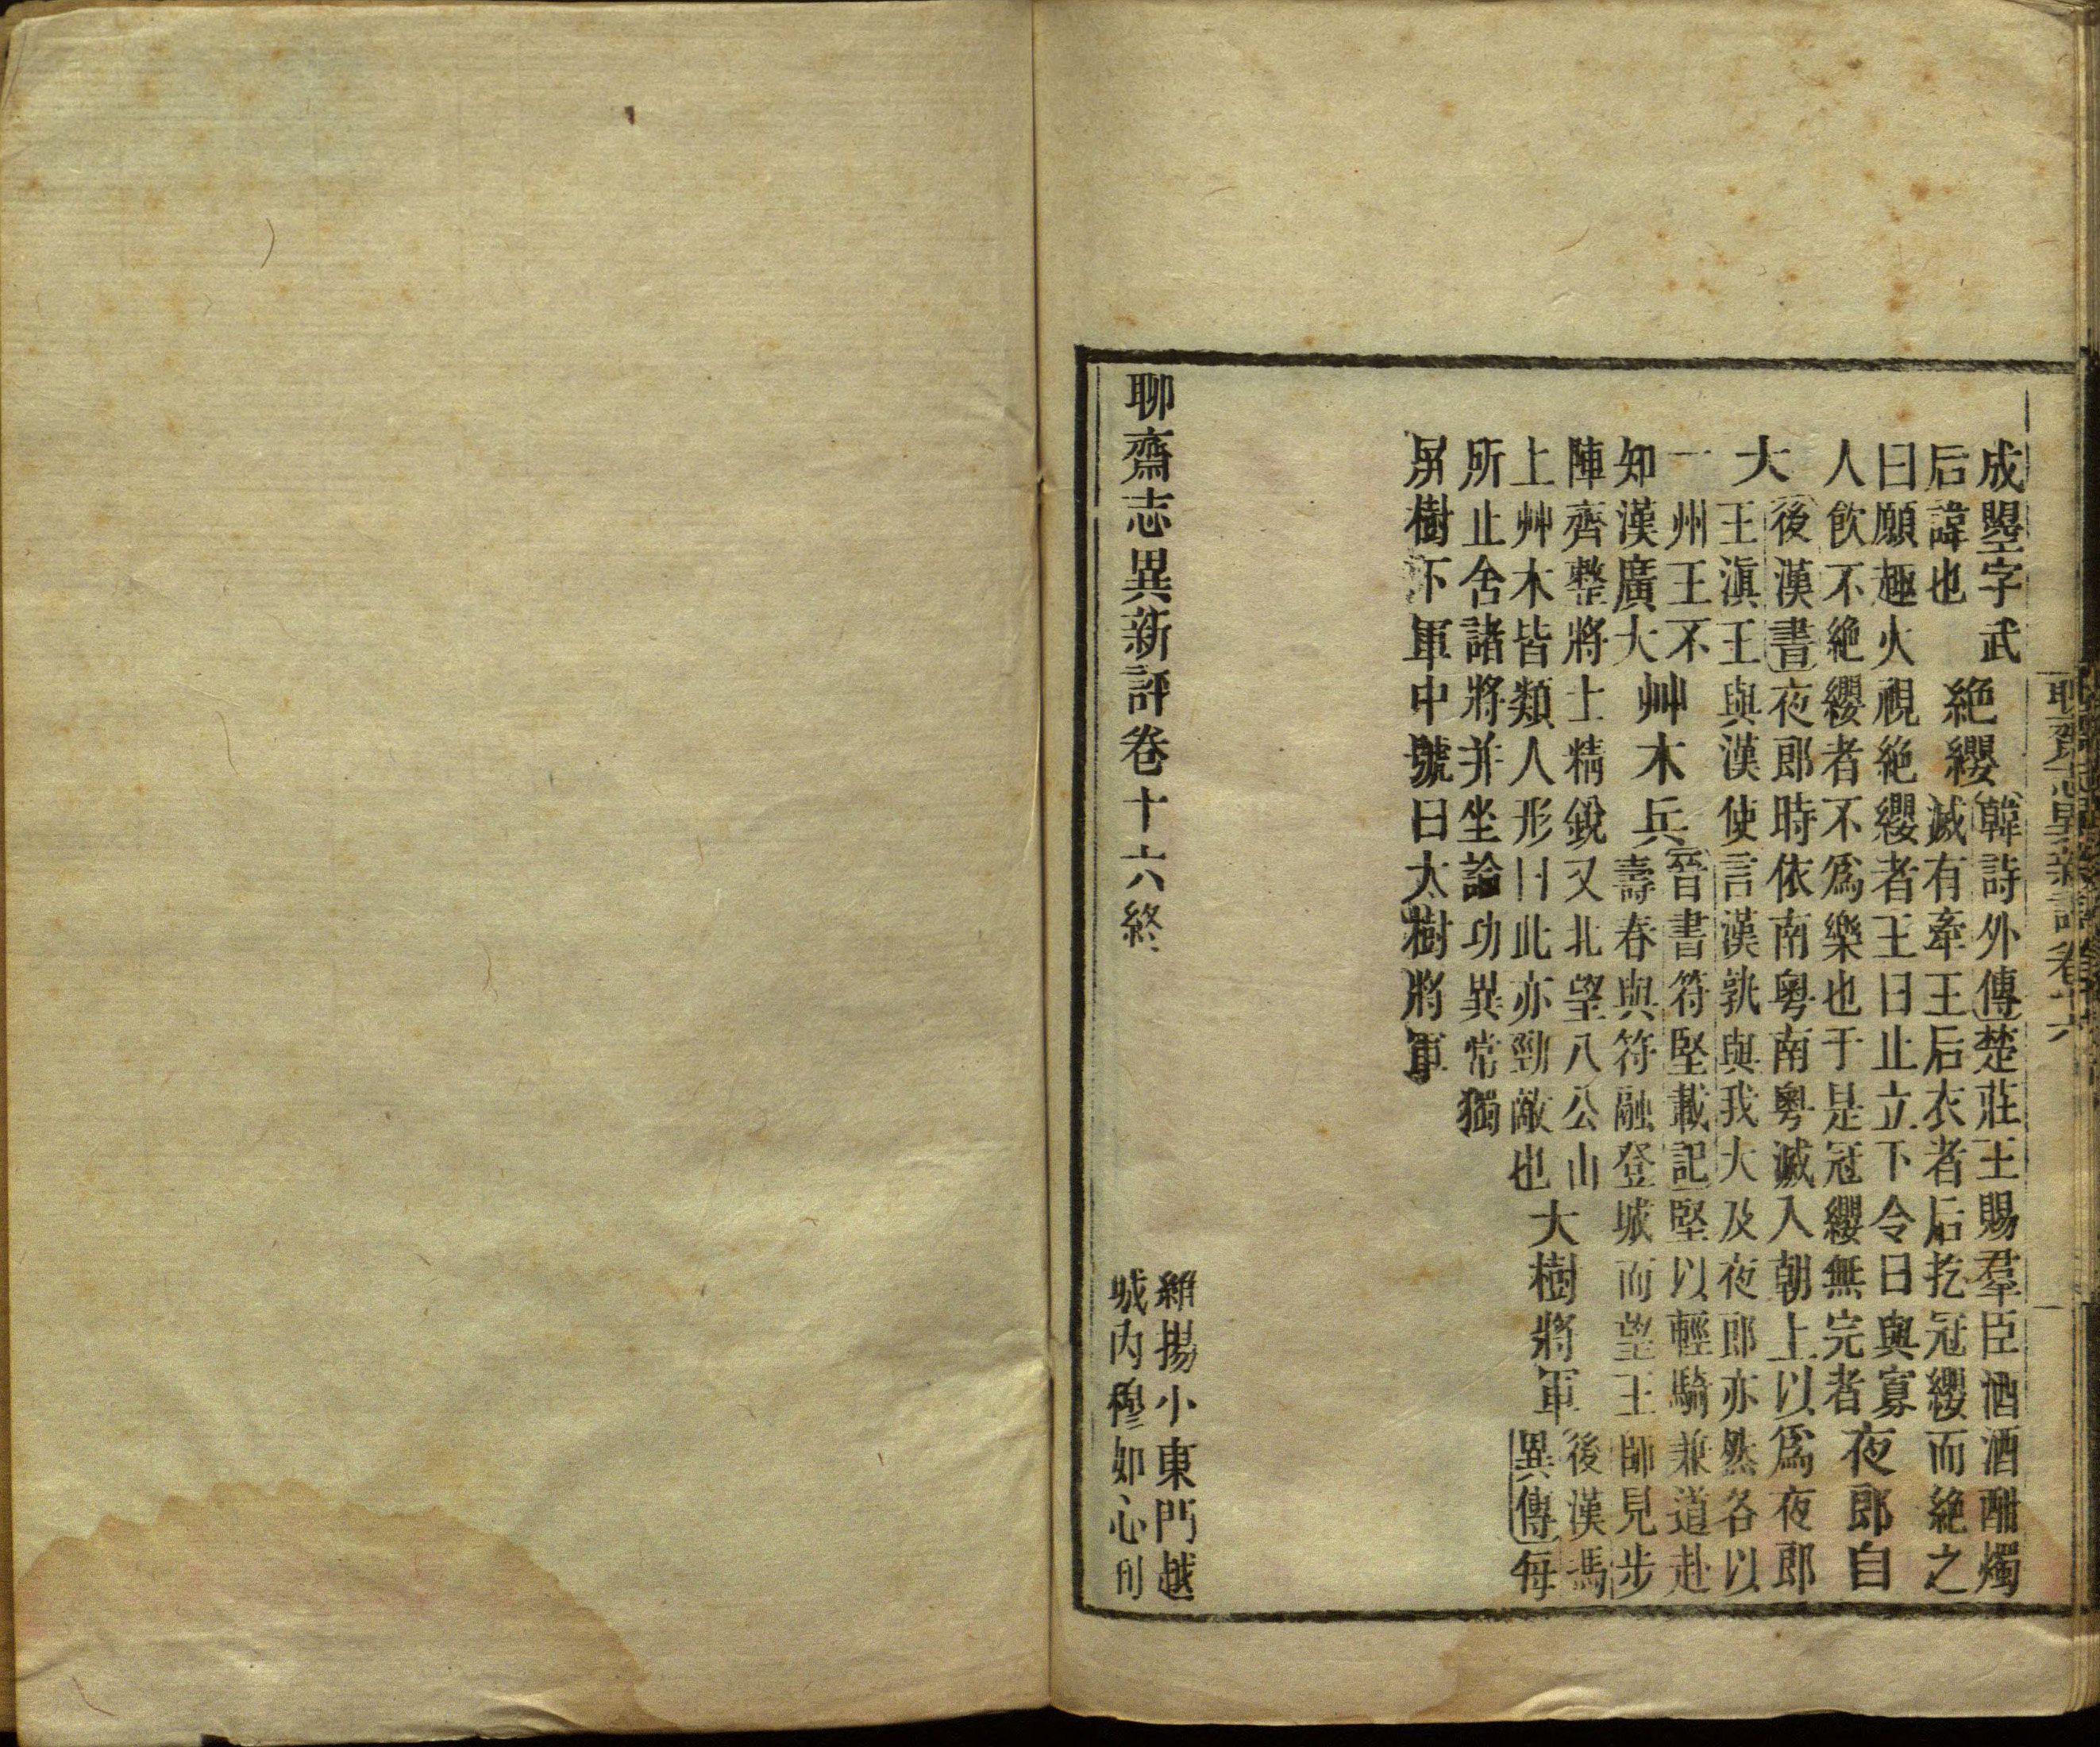 聊齋志異新評卷十六
成曌字武
后諱也
絶纓
韓詩外傳楚莊王賜羣臣酒酒酣燭
滅有牽王后衣者后扢冠纓而絶之
曰願趣火視絶纓者王曰止立下令曰與寡
人飲不絶纓者不爲樂也于是冠纓無完者
夜郎自
大
後漢書夜郎時依南粤南粤滅入朝上以爲夜郎
王滇王與漢使言漢孰與我大及夜郎亦然各以
一州王不
知漢廣大
艸木兵
晉書符堅載記堅以輕騎兼道赴
壽春與符融登城而望王師見步
陣齊整將士精銳又北望八公山
上艸木皆類人形曰此亦勁敵也
大樹將軍
後漢馮
異傳每
所止舍諸將并坐論功異常獨
屏樹下軍中號曰大樹將軍
聊齋志異新評卷十六終
維揚小東門越
城內穆如心刊